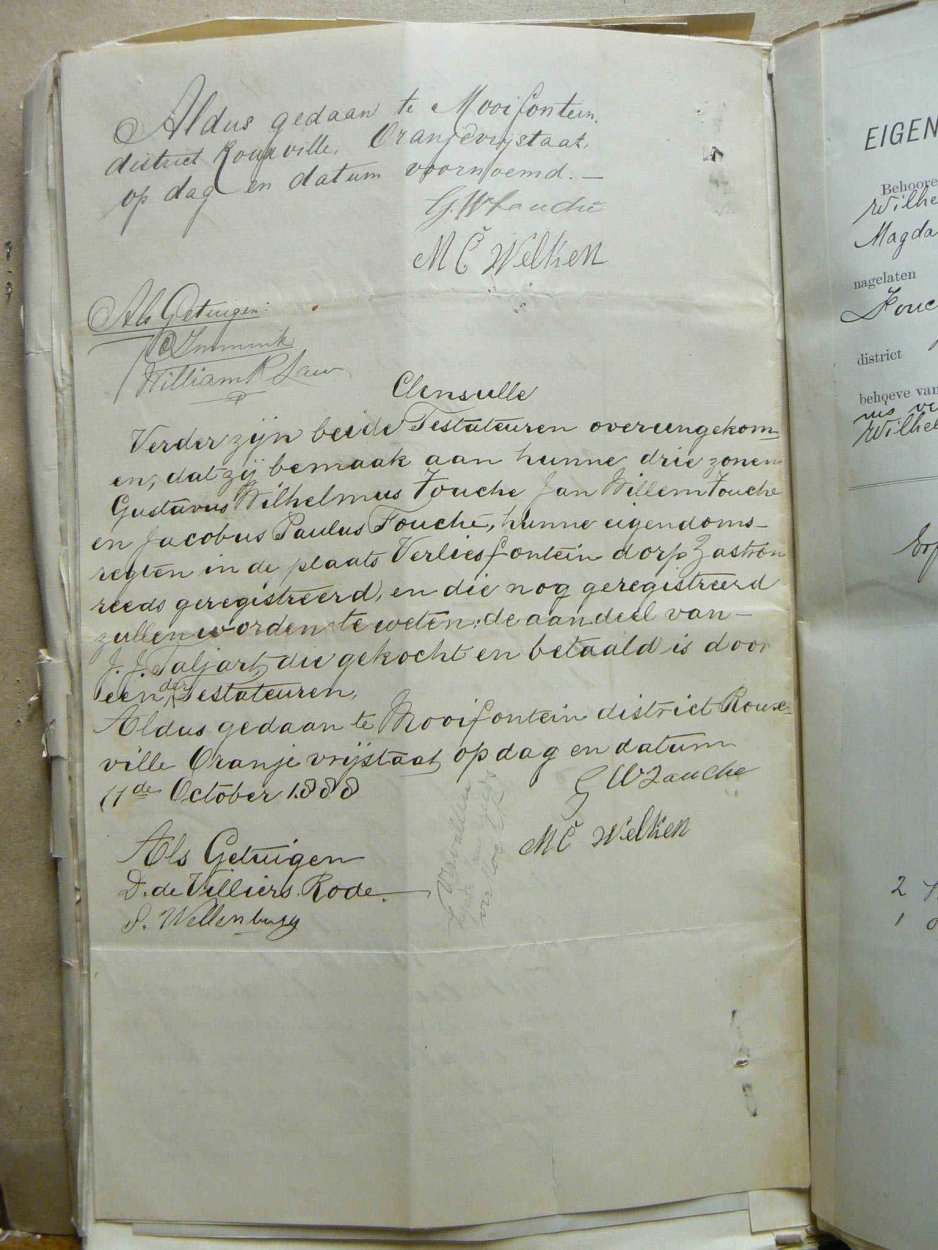 Aldus gedaan te Mooifontein,
district Rouxville, Oranjevrijstaat,
op dag en datum voornoemd. —
G. W Fouché
M C Welken
Als Getuigen:
William R Law
Clensulle
Verder zijn beide Testateuren overeengekom
en, dat zij bemaak aan hunne drie zonen
Gustavus Wilhelmus Fouche Jan Willem Fouche
en Jacobus Paulus Fouché, hunne eigendoms-
regten in de plaats Verliesfontein dorp Zastron
reeds geregistreerd, en die nog geregistreerd
zullen worden te weten: de aandeel van —
J. J. Taljart, die gekocht en betaald is door
een der Testateuren.
Aldus gedaan te Mooifontein district Roux-
ville Oranje vrijstaat op dag en datum
11de October 1888
G W Fouche
M C Welken
Als Getuigen
D. de Villiers Rode.
S. Wellenburg
EIGEN
Behoore
Wilhe
Magda
nagelaten
Fouc
district
behoeve van
Wilhel
2
1